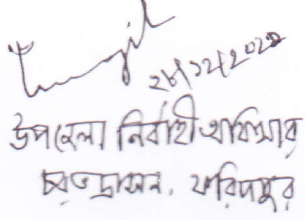 ২৮/১২/২০২০
উপজেলা নির্বাহী অফিসার
চরভদ্রাসন, ফরিদপুর